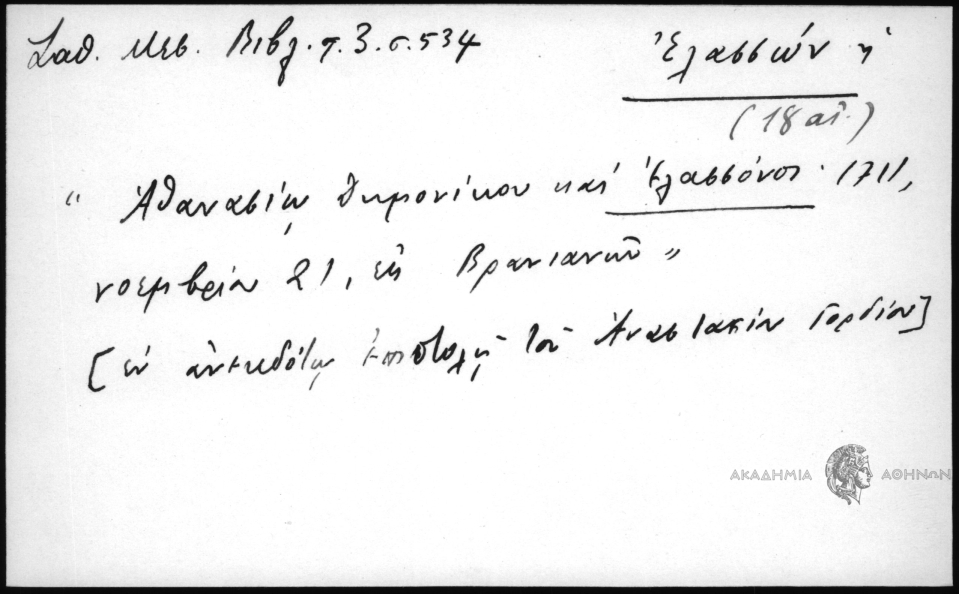 Σαθ. Μεσ. Βιβλ. τ. 3. σ. 534
Ἐλασσών ἡ
(18 αἰ.)
" Ἀθανασίῳ Δημονίκου καὶ Ἐλασσόνος. 1711,
νοεμβρίου 21, ἐκ Βρανιανῶν "
[ἐν ἀνεκδότῳ ἐπιστολῇ τοῦ Ἀναστασίου Γορδίου]
ΑΚΑΔΗΜΙΑ ΑΘΗΝΩΝ